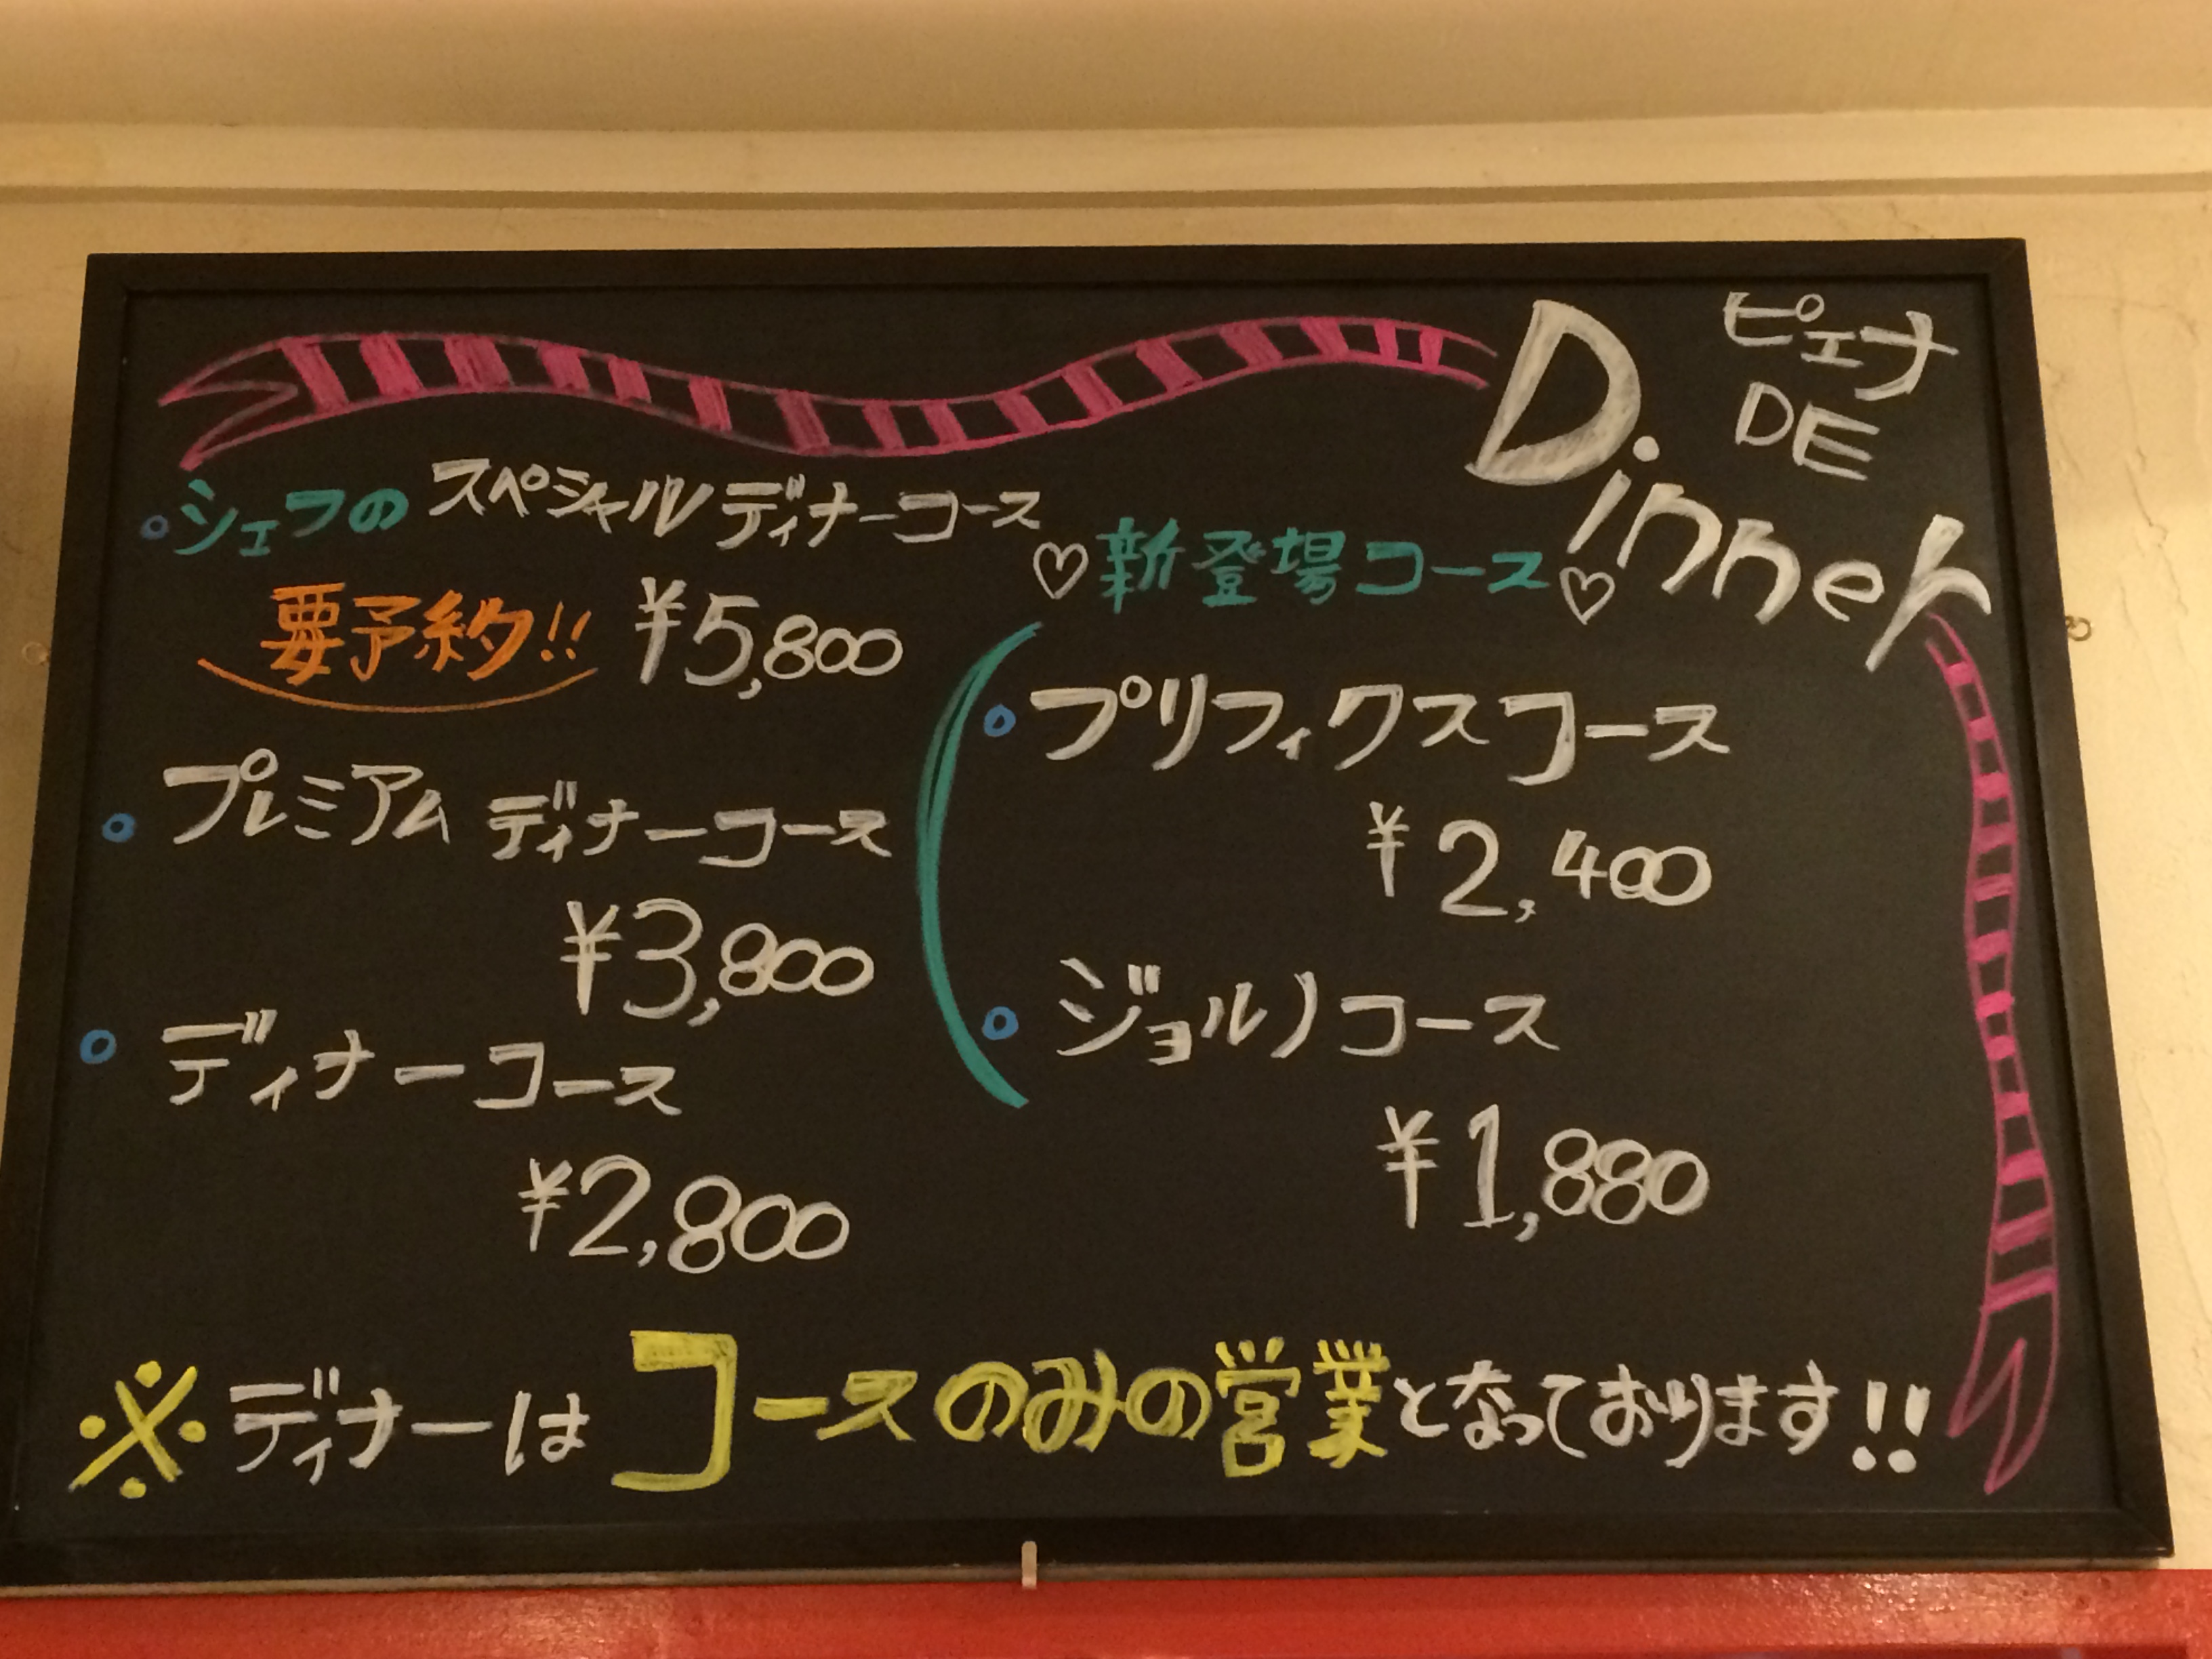 ピェナ
DE
Dinner
・シェフの スペシャルディナーコース
要予約!! ¥5,800
・プレミアム ディナーコース
¥3,800
・ディナーコース
¥2,800
♡新登場コース♡
・プリフィクスコース
¥2,400
・ジョルノコース
¥1,880
※ディナーは コースのみの営業となっております!!